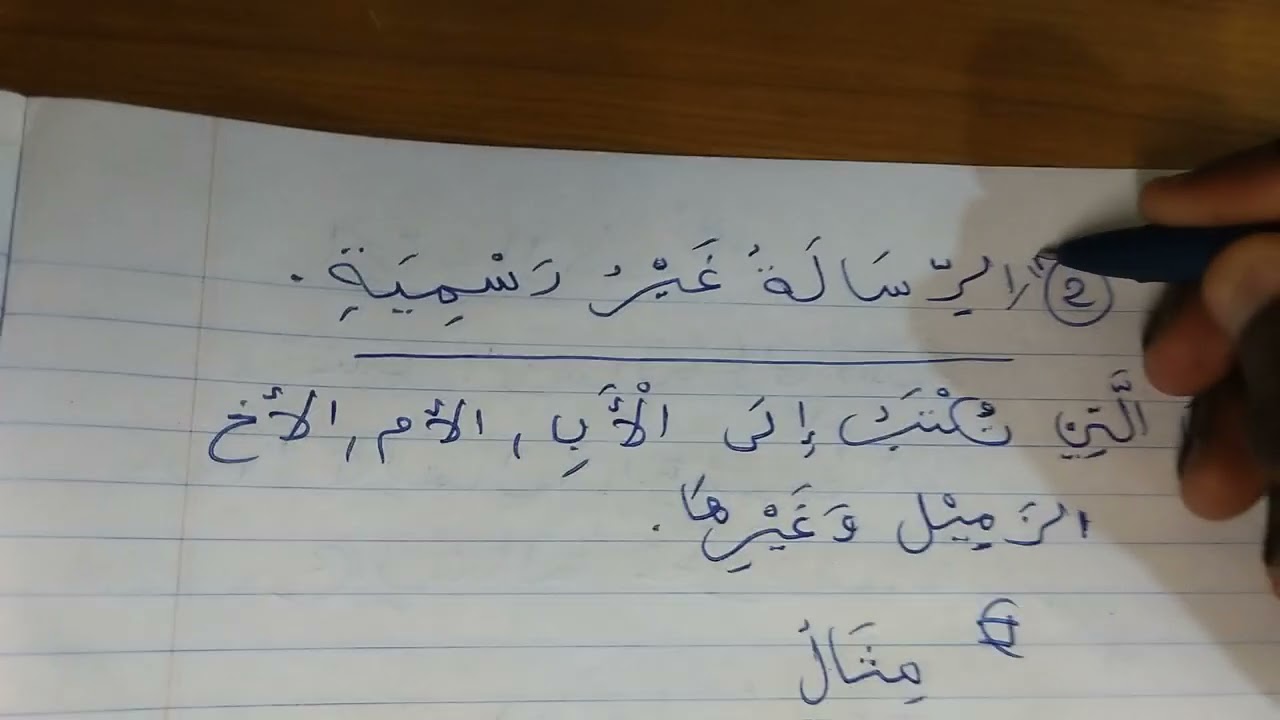 ② الرِّسَالَةُ غَيْرُ رَسْمِيَةِ .
الَّتِيِ تُكْتَبُ إِلَى الْأَبِ , الأم , الأخ
الزَمِيْل وَغَيْرِهَا .
مِثَالُ